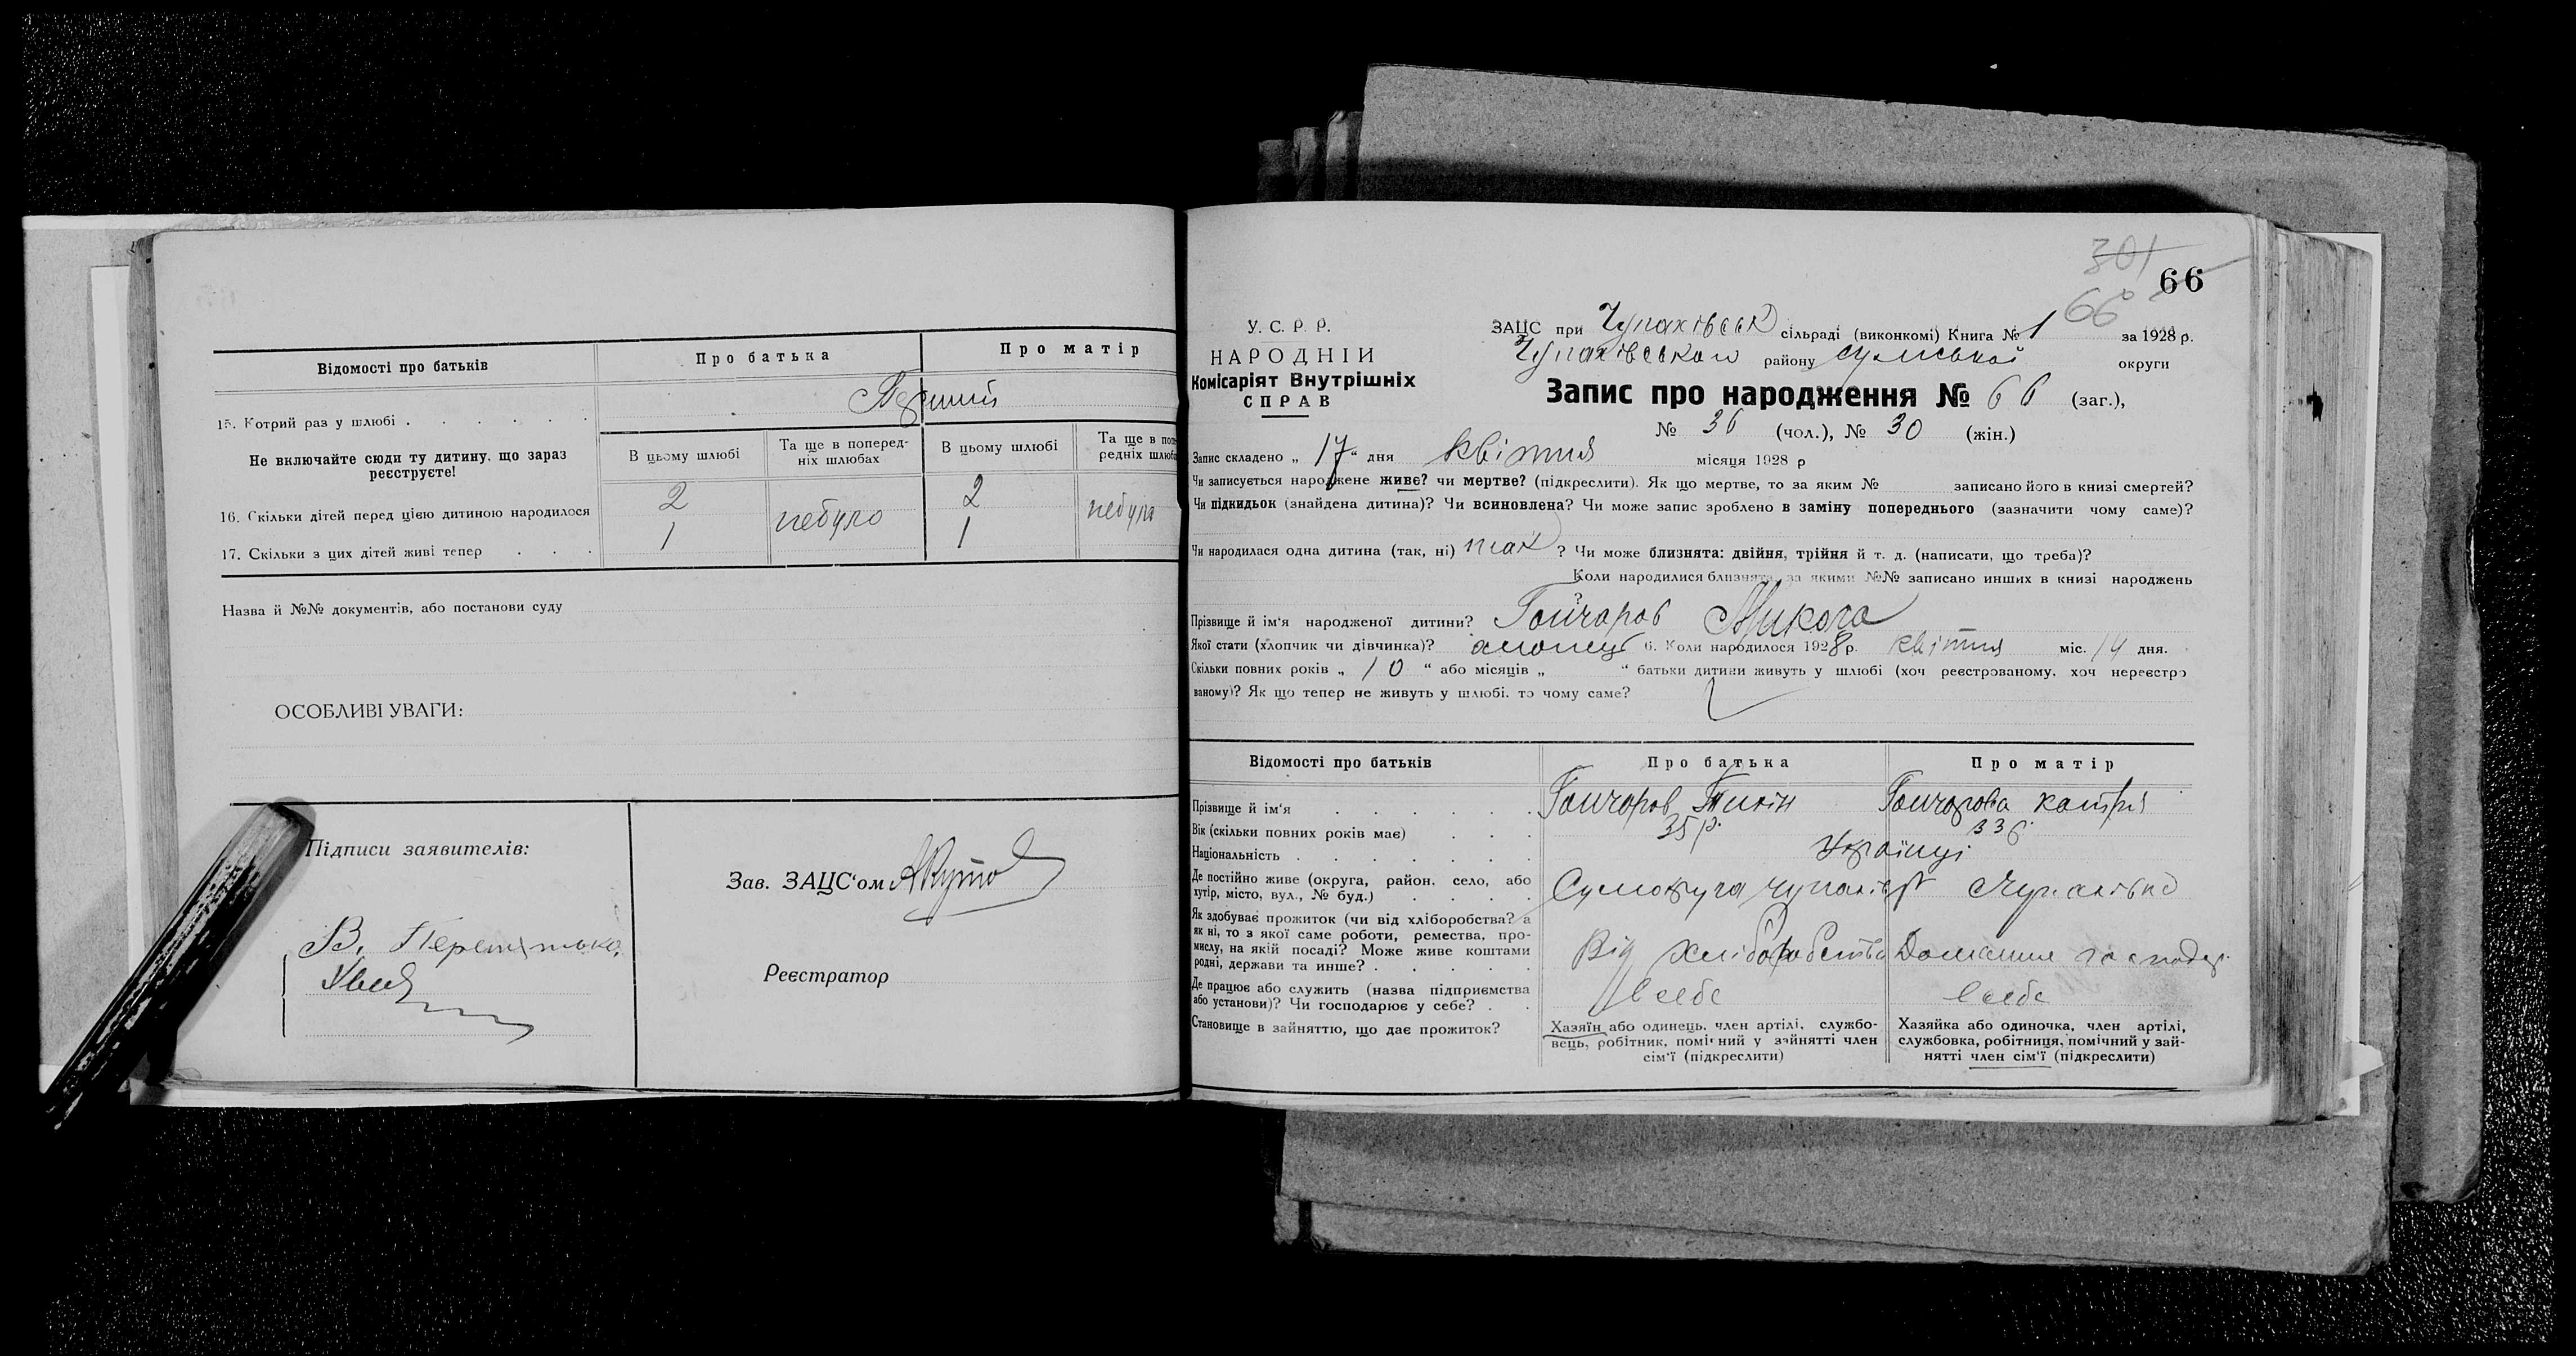 Відомості про батьків
Про батька
Про матір
15. Котрий раз у шлюбі . . . . . .
Перший
Не включайте сюди ту дитину, що зараз реєструєте!
В цьому шлюбі
Та ще в поперед-
ніх шлюбах
В цьому шлюбі
Та ще в поп
редніх шлюба
16. Скільки дітей перед цією дитиною народилося
2
небуло
2
небуло
17. Скільки з цих дітей живі тепер . . .
1
1
Назва й №№ документів, або постанови суду
ОСОБЛИВІ УВАГИ:
Підписи заявителів:
В.
Зав. ЗАЦС'ом
Реєстратор
301
66
66
У. С. Р. Р.
НАРОДНІЙ
Комісаріят Внутрішніх
СПРАВ
ЗАЦС при Чупахівськ сільраді (виконкомі) Книга № 1 за 1928 р.
Чупахівського району Сумської округи
Запис про народження № 66 (заг.),
№ 36 (чол.), № 30 (жін.)
Запис складено „ 17 “ дня квітня місяця 1928 р
Чи записується народжене живе? чи мертве? (підкреслити). Як що мертве, то за яким № записано його в книзі смертей?
Чи підкидьок (знайдена дитина)? Чи всиновлена? Чи може запис зроблено в заміну попереднього (зазначити чому саме)?
Чи народилася одна дитина (так, ні) так ? Чи може близнята: двійня, трійня й т. д. (написати, що треба)?
Коли народилися близнята, за якими №№ записано инших в книзі народжень
?
Прізвище й ім'я народженої дитини? Гончаров Микола
Якої стати (хлопчик чи дівчинка)? хлопець 6. Коли народилося 1928 р. квітня міс. 14 дня.
Скільки повних років „ 10 “ або місяців „ “ батьки дитини живуть у шлюбі (хоч реєстрованому, хоч нереєстро
ваному)? Як що тепер не живуть у шлюбі, то чому саме?
Відомості про батьків
Про батька
Про матір
Прізвище й ім'я . . . . . .
Гончаров
Гончарова Катря
Вік (скільки повних років має) . . .
35 р.
33 р.
Національність . . . . . . .
Українці
Де постійно живе (округа, район, село, або
хутір, місто, вул., № буд.) . . . .
Чупахівка
Як здобуває прожиток (чи від хліборобства? а
як ні, то з якої саме роботи, ремества, про-
мислу, на якій посаді? Може живе коштами
родні, держави та инше? . . . . .
Від хліборобства
Домашнє господар.
Де працює або служить (назва підприємства
або установи)? Чи господарює у себе? . .
в себе
в себе
Становище в зайняттю, що дає прожиток?
Хазяїн або одинець, член артілі, службо-
вець, робітник, помічний у зайнятті член
сім'ї (підкреслити)
Хазяйка або одиночка, член артілі,
службовка, робітниця, помічний у зай-
нятті член сім'ї (підкреслити)